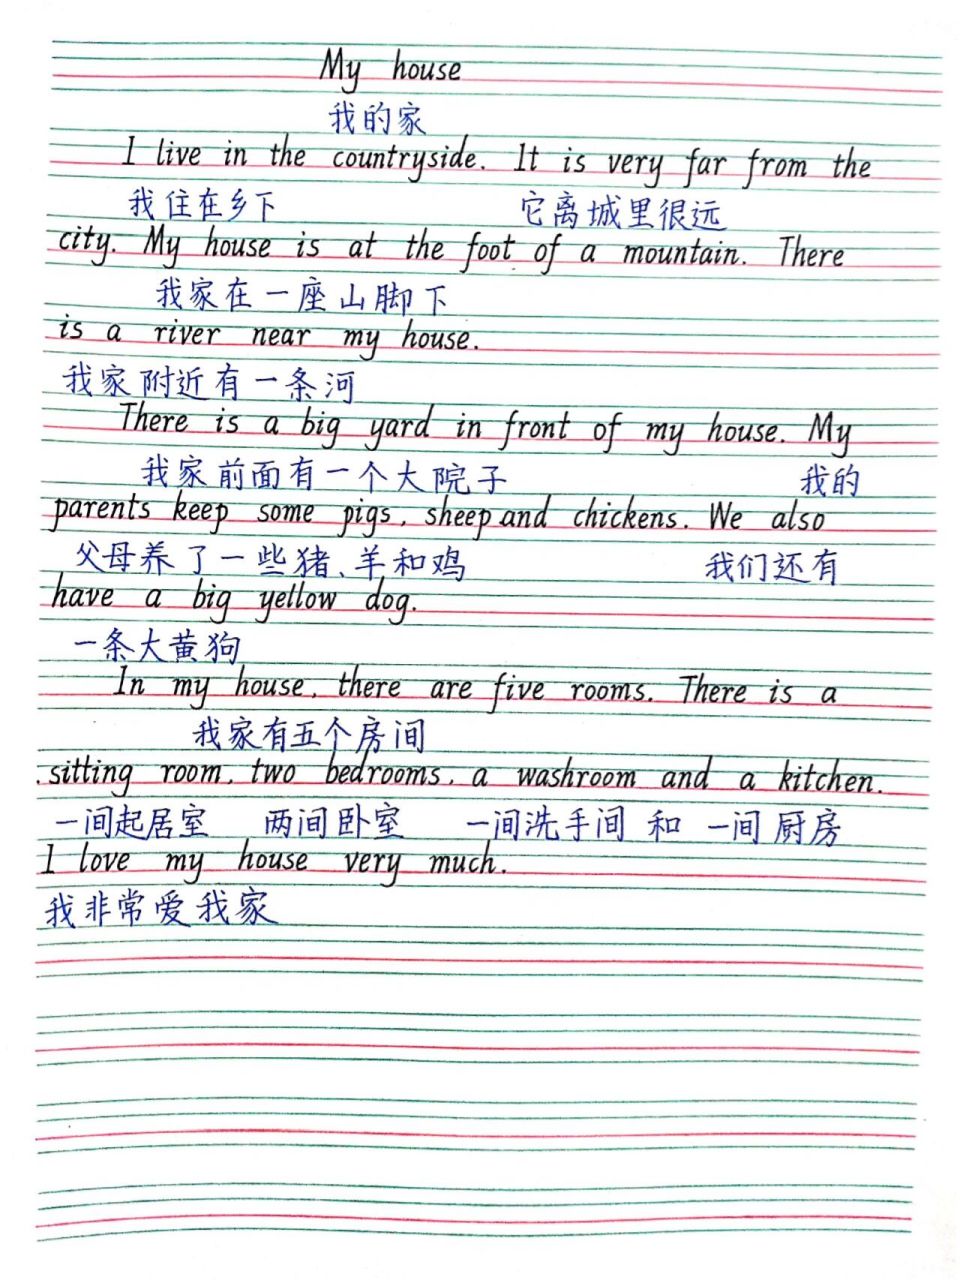 My house
我的家
I live in the countryside. It is very far from the
我住在乡下 它离城里很远
city. My house is at the foot of a mountain. There
我家在一座山脚下
is a river near my house.
我家附近有一条河
There is a big yard in front of my house. My
我家前面有一个大院子 我的
parents keep some pigs, sheep and chickens. We also
父母养了一些猪、羊和鸡 我们还有
have a big yellow dog.
一条大黄狗
In my house, there are five rooms. There is a
我家有五个房间
sitting room, two bedrooms, a washroom and a kitchen.
一间起居室 两间卧室 一间洗手间 和 一间厨房
I love my house very much.
我非常爱我家